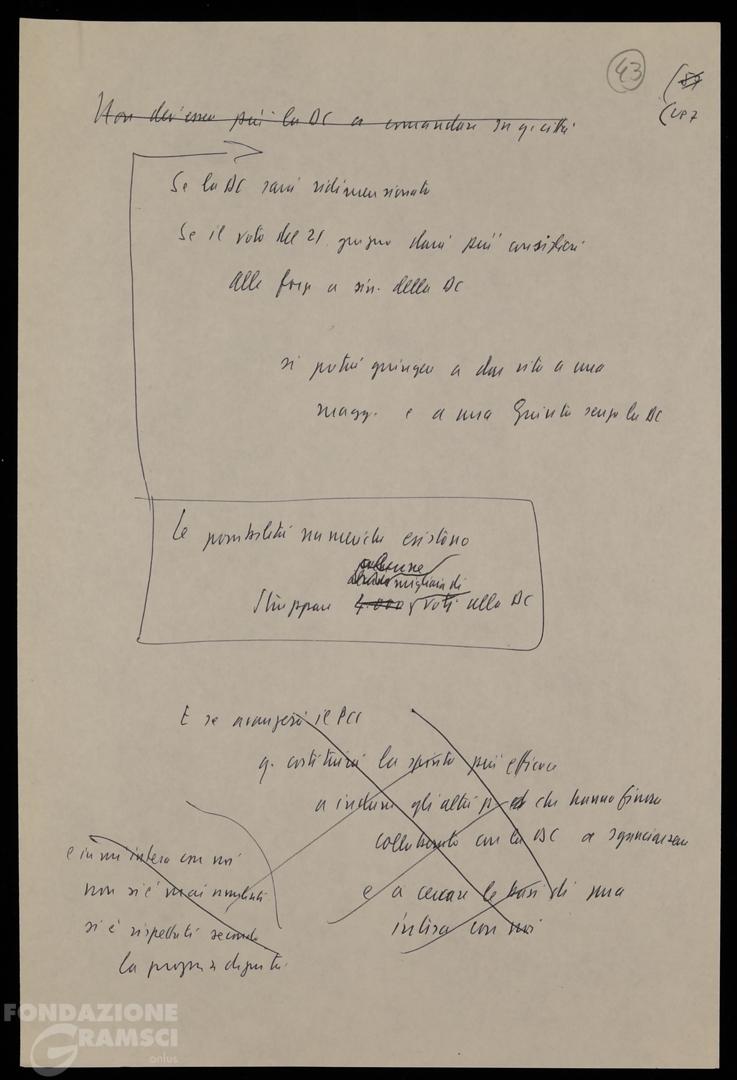 43
Non dev'essere più la DC a comandare in q. città
Se la DC sarà ridimensionata
Se il voto del 21 giugno darà più consiglieri
alle forze a sin. della DC
si potrà giungere a dar vita a una
magg. e a una Giunta senza la DC
Le possibilità numeriche esistono
alcune
migliaia di
Strappare 4.000 voti alla DC
E se avanzerà il PCI
q. costituirà la spinta più efficace
a indurre gli altri p. che hanno finora
collaborato con la DC a sganciarsene
e a cercare le basi di una
intesa con noi
e in un'intesa con noi
non si è mai umiliati
si è rispettati secondo
la propria dignità
FONDAZIONE
GRAMSCI
onlus